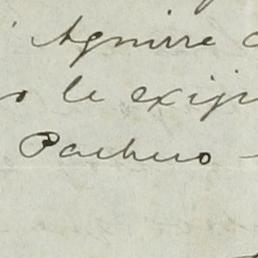 Aguirre
o le exiji
Pacheco